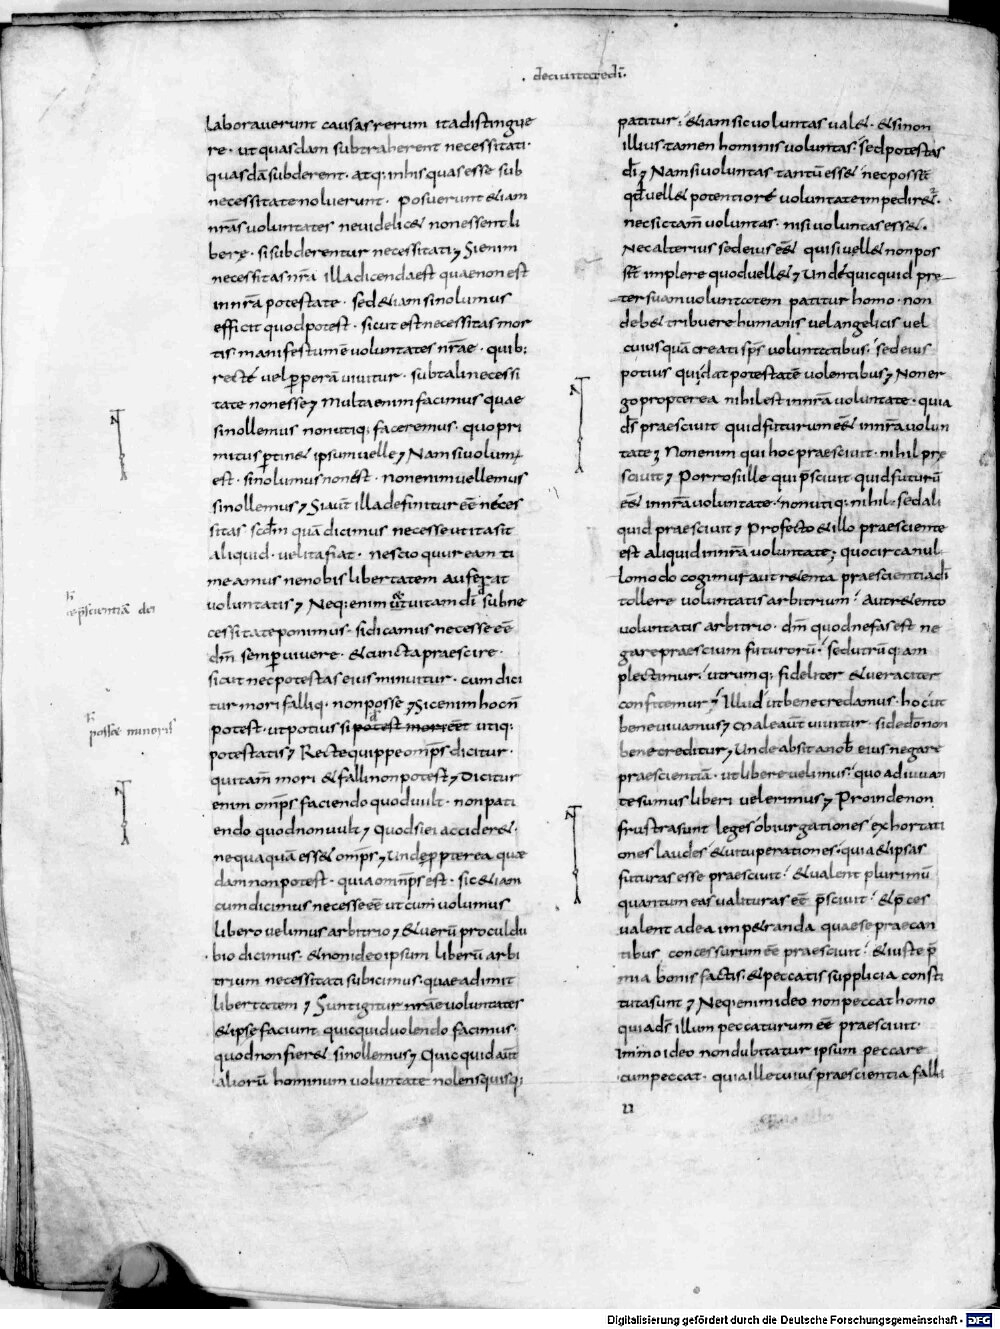 . deciuitatedī.
laborauerunt causas rerum ita distingue
re· ut quasdam subtraherent necessitati·
quasdā subderent· atq; in his quas esse sub
necessitate noluerunt· posuerunt &iam
nr̄as uoluntates ne uidelic& non essent li
bere· si subderentur necessitati; Si enim
necessitas nr̄a illa dicenda est quae non est
in nr̄a potestate· sed &iam si nolumus
efficit quod potest· sicut est necessitas mor
tis· manifestum ē uoluntates nr̄ae· quib;
recte uel perperā uiuitur· sub tali necessi
tate non esse; Multa enim facimus quae
si nollemus non utiq; faceremus· quo pri
mitus ptin& ipsum uelle; Nam si uolum;
est· si nolumus non est· non enim uellemus
si nollemus; Si aūt illa definitur eē neces
sitas scdm̄ quā dicimus necesse ut ita sit
aliquid· uel ita fiat· nescio quur eam ti
meamus ne nobis libertatem auferat
uoluntatis; Neq; enim ut uitam dī sub ne
cessitate ponimus· si dicamus necesse eē
dm̄ semp uiuere· & cuncta praescire·
sicut nec potestas eius minuitur· cum dici
tur mori falliq· non posse; Sic enim hoc ñ
potest· ut potius si utiq·
potestatis; Recte quippe omps̄ dicitur·
qui tam̄ mori & falli non potest; Dicitur
enim omps̄ faciendo quod uult· non pati
endo quod non uult; Quod si ei accider&·
nequaquā ess& omps̄; Unde ppterea quae
dam non potest· quia omnps̄ est· sic &iam
cum dicimus necesse eē ut cum uolumus
libero uelimus arbitrio; & uerū procul du
bio dicimus· & non ideo ipsum liberū arbi
trium necessitati subicimus· quae adimit
libertatem; Sunt igitur nr̄ae uoluntates
& ipse faciunt quicquid uolendo facimus·
quod non fier& si nollemus; Quicquid aūt
aliorū hominum uoluntate nolens quisq;
patitur· &iam sic uoluntas ual&· & si non
illius tamen hominis uoluntas· sed potestas
dī; Nam si uoluntas tantū ess& nec poss&
qd uell& potentiore uoluntate impedir&·
nec sic tam̄ uoluntas· nisi uoluntas ess&·
Nec alterius sed eius eēt qui si uell& non pos
s& implere quod uell&; Unde quicquid pre
ter suam uoluntatem patitur homo· non
deb& tribuere humanis uel angelicis uel
cuius quā creati sps̄ uoluntatibus· sed eius
potius qui dat potestatē uolentibus; Non er
go propterea nihil est in nr̄a uoluntate· quia
ds̄ praesciuit quid futurum eēt in nr̄a uolun
tate; Non enim qui hoc praesciuit· nihil pre
sciuit; Porro si ille qui p̄sciuit quid futurū
eēt in nr̄a uoluntate· non utiq; nihil· sed ali
quid praesciuit; Profecto & illo praesciente
est aliquid in nr̄a uoluntate; quocirca nul
lo modo cogimur aut retenta praescientia dī
tollere uoluntatis arbitrium· Aut retento
uoluntatis arbitrio· dm̄ quod nefas est ne
gare praescium futurorū· sed utrūq; am
plectimur· utrumq; fideliter & ueraciter
confitemur; Illud ut bene credamus· hoc ut
bene uiuamus; Male aūt uiuitur si de dō non
bene creditur; Unde absit a nob eius negare
praescientiā· ut libere uelimus· quo adiuuan
te sumus liberi uel erimus; Proinde non
frustra sunt leges obiurgationes exhortati
ones laudes & uituperationes· quia & ipsas
futuras esse praesciuit· & ualent plurimū
quantum eas ualituras eē p̄sciuit· & p̄ces
ualent ad ea imp&randa quae se praecan
tibus concessurum eē praesciuit· & iuste p̄
mia bonis factis· & peccatis supplicia consti
tuta sunt; Neq; enim ideo non peccat homo
quia ds̄ illum peccaturum eē praesciuit·
immo ideo non dubitatur ipsum peccare
cum peccat· quia ille cuius praescientia falli
p̄scientiā dei
posse minoris
Digitalisierung gefördert durch die Deutsche Forschungsgemeinschaft - DFG